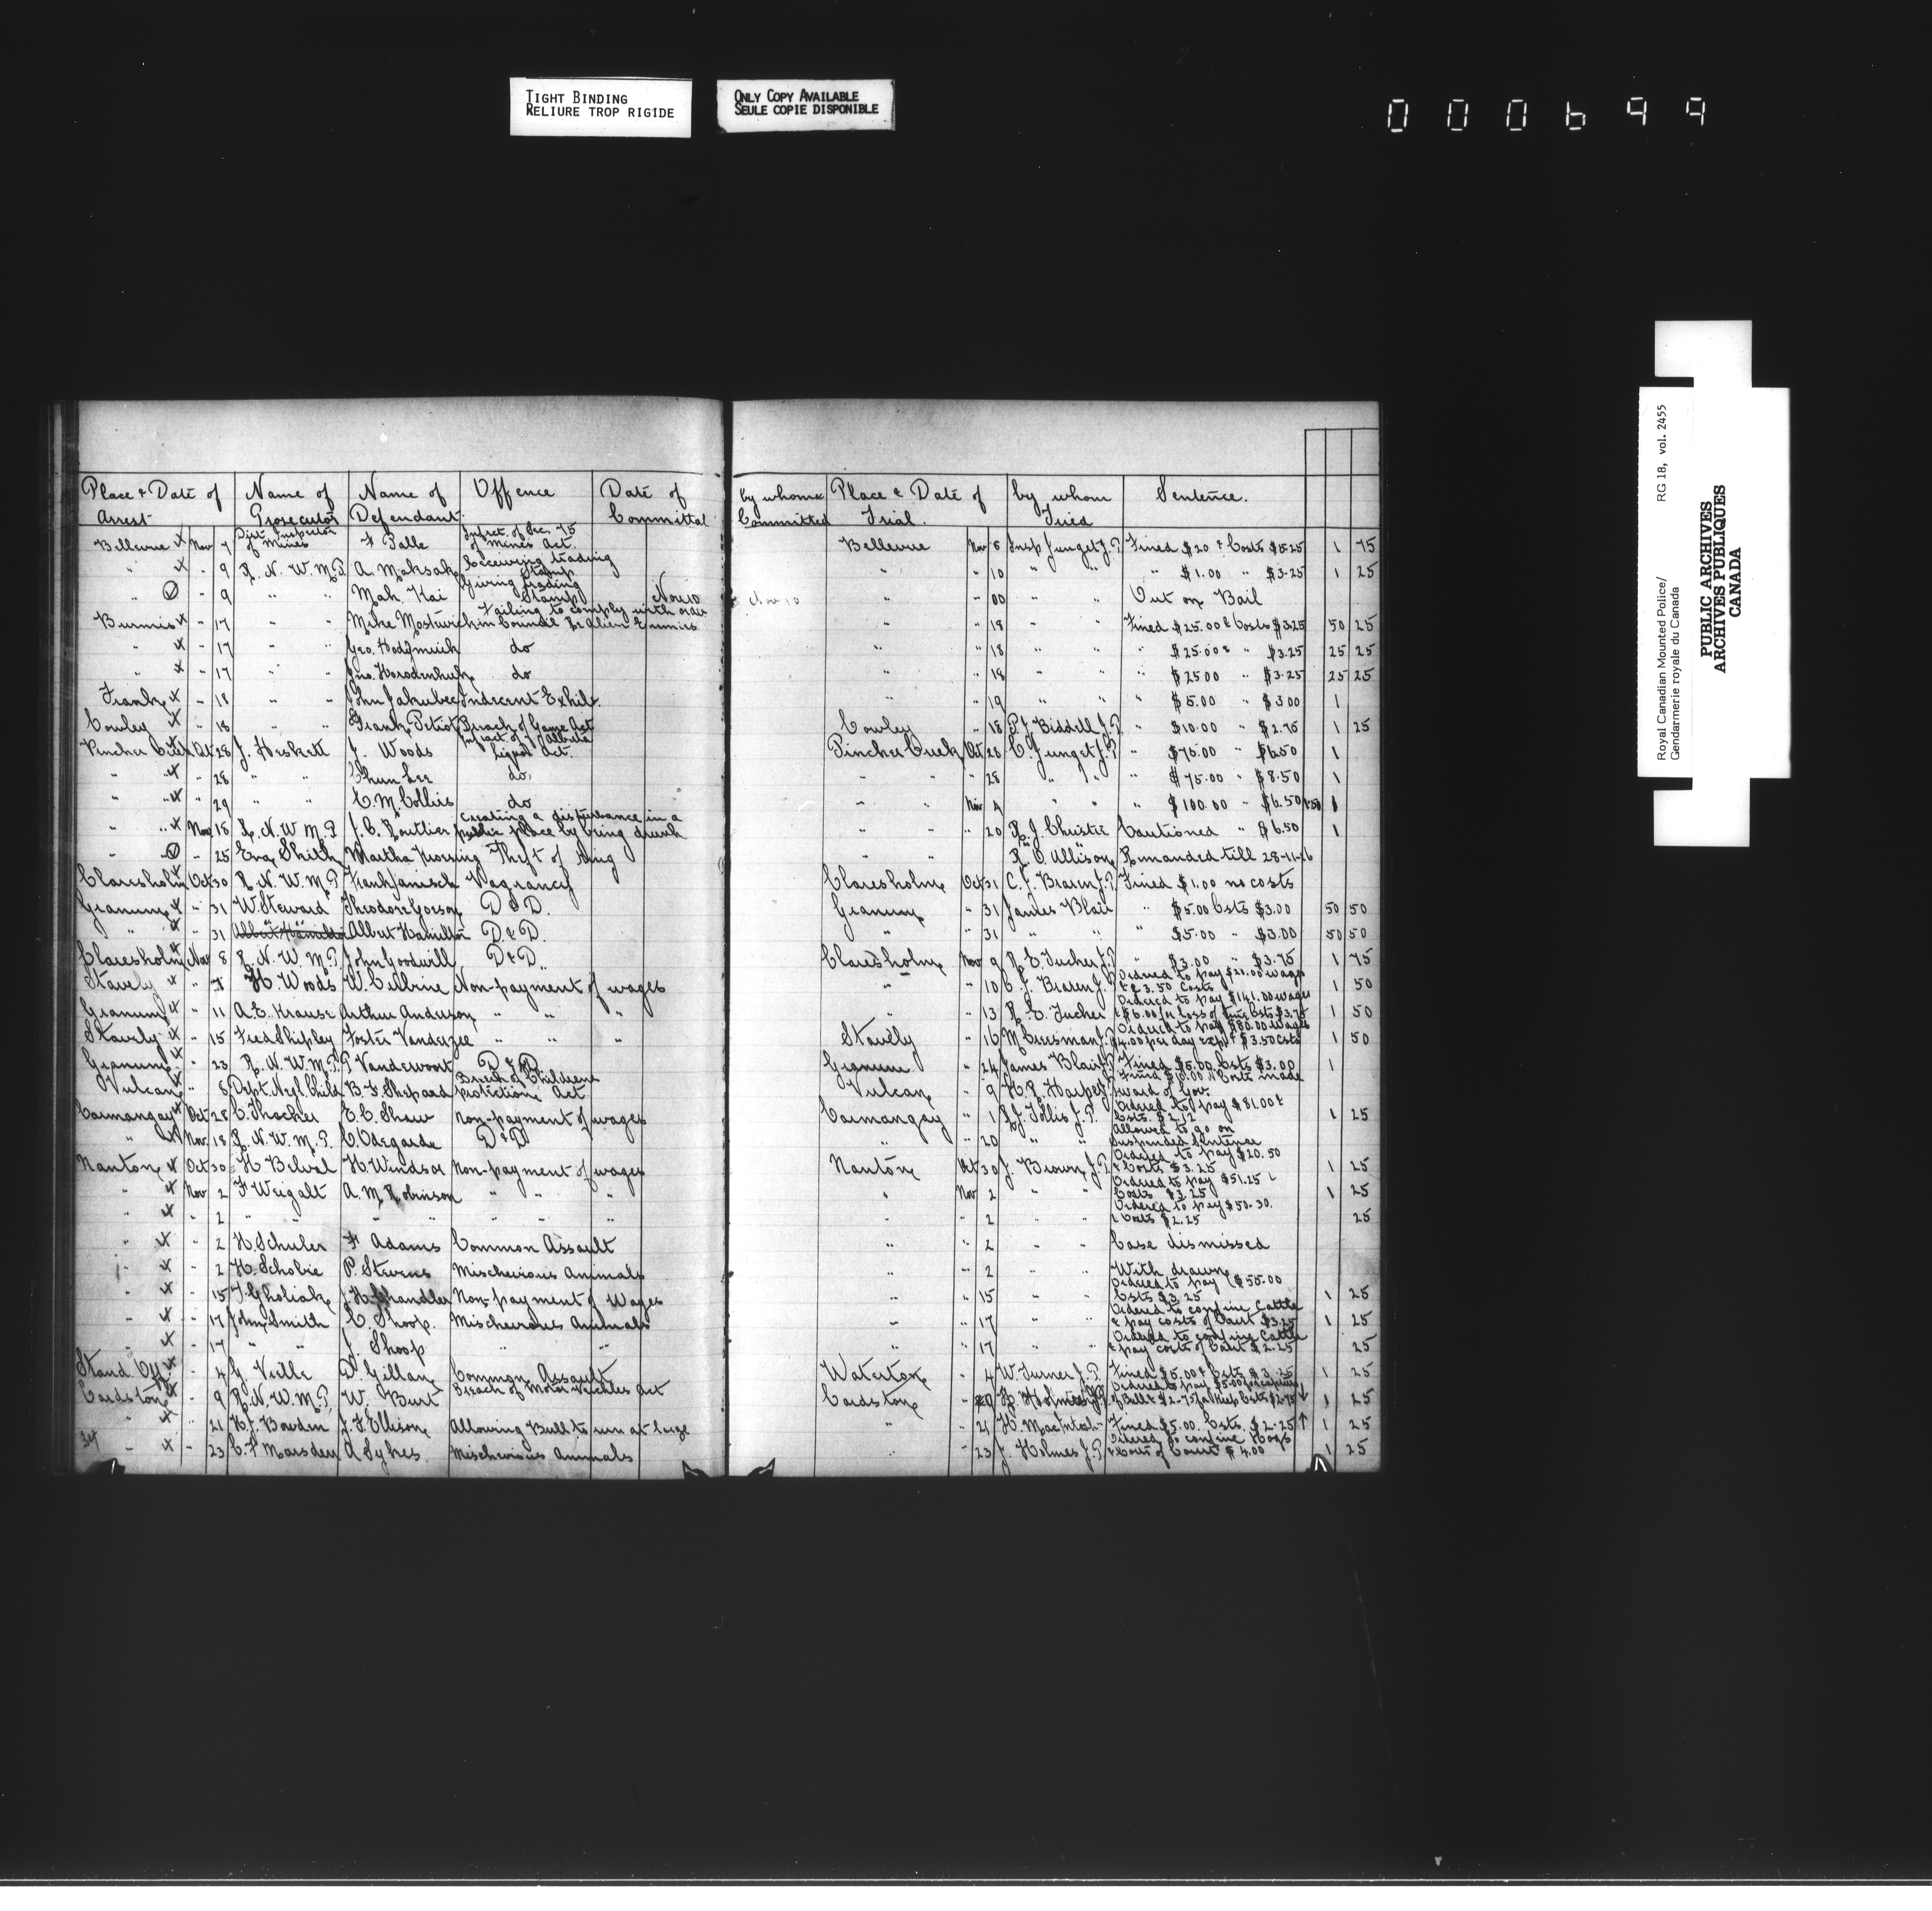 TIGHT BINDING
RELIURE TROP RIGIDE
ONLY COPY AVAILABLE
SEULE COPIE DISPONIBLE
000699
Royal Canadian Mounted Police/
Gendarmerie royale du Canada
RG 18, vol. 2455
PUBLIC ARCHIVES
ARCHIVES PUBLIQUES
CANADA
Place & Date of Arrest | Name of Prosecutor | Name of Defendant | Offence | Date of Committal | by whom Committed | Place & Date of Trial | by whom Tried | Sentence.
Bellevue x Nov 7 Dist. Inspector of Mines F Palle Infract. of Sec. 75 of Mines Act. Bellevue Nov 8 Insp Junget J.P. Fined $20 & Costs 1 75
" x " 9 R. N. W. M. P. A. Maksak Receiving trading Stamp " " 10 " " " $1.00 " $3.25 1 25
" " 9 " " Mah. Kai Giving trading Stamp Nov 10 Nov 10 " " 00 " " Out on Bail
Burmis x " 17 " " Mike Failing to comply with order in Council Re Alien Enemies " " 18 " " Fined $25.00 & Costs $3.25 50 25
" x " 17 " " Geo. do " " 18 " " " $25.00 & " $3.25 25 25
" x " 17 " " Jno. do " " 18 " " " $25.00 " $3.25 25 25
Frank x " 18 " " John Jakubec Indecent Exhib. " " 19 " " " $5.00 " $3.00 1
Cowley x " 18 " " Frank Petiot Breach of Game Act Cowley " 18 P. J. Biddell J.P. " $10.00 " $2.75 1 25
Pincher Creek x Oct 28 J. Heskett J. Woods Infract. of Alberta Liquor Act. Pincher Creek Oct 28 C. Junget J.P. " $75.00 " $6.50 1
" " x " 28 " " Chun Lee do. " " " 28 " " " $75.00 " $8.50 1
" " x " 29 " " C. M. Collins do " " Nov " " " $100.00 " $6.50 1
" " x Nov 18 R. N. W. M. P. J. C. Routlier creating a disturbance in a public place by being drunk " " " 20 R. J. Christie Cautioned " $6.50 1
" " " 25 Eva Smith Martha Theft of Ring " " R. O. Allison Remanded till 28-11-16
Claresholm x Oct 30 R. N. W. M. P. Frank Janisch Vagrancy Claresholm Oct 31 C. J. Braren J.P. Fined $1.00 no costs
Granum x " 31 W. Steward Theodore D & D. Granum " 31 James Blair " $5.00 Csts $3.00 50 50
" x " 31 Albert Hamilton Albert Hamilton D & D. " " 31 " " " $5.00 " $3.00 50 50
Claresholm x Nov 8 R. N. W. M. P. John Goodwill D & D. Claresholm Nov 9 R. E. Tucker J.P. " $3.00 " $3.75 1 75
Stavely x " H. Woods W. Non-payment of wages " " 10 C. J. Braren J.P. Ordered to pay $20.00 wages & $3.50 Costs 1 50
Granum x " 11 A. E. Krause Arthur Anderson " " " " " 13 R. E. Tucker Ordered to pay $141.00 wages & $6.00 for loss of time Csts $3.75 1 50
Stavely x " 15 Fred Shipley Foster Vanderzee " " " Stavely " 16 M Ordered to pay $80.00 wages $4.00 per day & $3.50 Csts 1 50
Granum x " 23 R. N. W. M. P. P Vandewoort D & D. Granum " 24 James Blair J.P. Fined $5.00 Csts $3.00 1
Vulcan x " 8 Dept. Negl. Child B. F. Shepard Breach of Childrens Protection Act Vulcan " 9 H. R. Harper Fined $10.00 & Costs made ward of Gov.
Carmangay x Oct 28 C. Thacker E. C. Shaw Non-payment of wages Carmangay " 1 R. J. Follis J.P. Ordered to pay $81.00 & Csts. $2.12 1 25
" x Nov 18 R. N. W. M. P. C. Odegarde D & D " " 20 " " Allowed to go on Suspended Sentence
Nanton x Oct 30 H. Belval H. Windsor Non-payment of wages Nanton Oct 30 J. Brown J.P. Ordered to pay $20.50 & Costs $3.25 1 25
" x Nov 2 F Weigalt A. M. Robinson " " " " Nov 2 " " Ordered to pay $51.25 Costs $3.25 1 25
" x " 2 " " " " " " " " " 2 " " Ordered to pay $50.30. & Costs $2.25 25
" x " 2 H. Schuler F. Adams Common Assault " " 2 " " Case dismissed
" x " 2 H. Scholie P. Stevens Mischevious Animals " " 2 " " With drawn
" x " 15 J. H. Chandler Non-payment of Wages " " 15 " " Ordered to pay $55.00 Csts $3.25 1 25
" x " 17 John Smith C. Shoop. Mischevious Animals " " 17 " " Ordered to confine Cattle & pay costs of Court $3.25 1 25
" x " 17 " " J. Shoop " " " " 17 " " Ordered to confine Cattle & pay costs of Court $2.25 25
Stand Off x " 4 G. Vielle D. Gillan Common Assault Waterton " 4 W. Turner J.P. Fined $5.00 & Csts $3.25 1 25
Cardston x " 9 R. N. W. M. P. W. Burt Breach of Motor Vechles Act Cardston " Holmes J.P. Ordered to pay $5.00 for capture of Bull & $2.75 for Keep Csts $2.75 ↓ 1 25
" x " 21 H. J. Bowden J. F. Ellison Allowing Bull to run at large " " 21 H. MacIntosh " Fined $5.00. Csts. $2.25 ↑ 1 25
34 " x " 23 C. F Marsden A Sykes. Mischevious Animals " " 23 J. Holmes J.P. Ordered to confine Hogs & Costs of Court $4.00 1 25